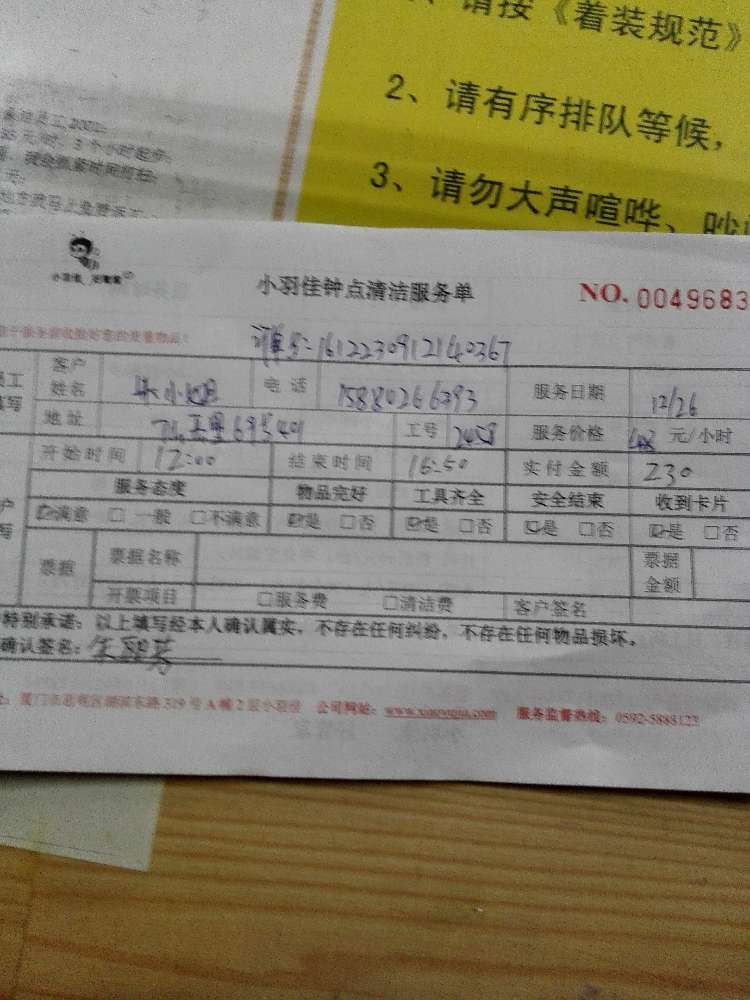 、请按《着装规范》
2、请有序排队等候，
3、请勿大声喧哗、吵
元/时，3个小时起步；
小羽佳钟点清洁服务单
NO. 0049683
订单号:1612230912140367
客户姓名 小姐 电话 15880266393 服务日期 12/26
地址 695401 工号 服务价格 元/小时
开始时间 12:00 结束时间 16:50 实付金额 230
服务态度 物品完好 工具齐全 安全结束 收到卡片
☑满意 □一般 □不满意 ☑是 □否 ☑是 □否 ☑是 □否 ☑是 □否
票据 票据名称 票据金额
开票项目 □服务费 □清洁费 客户签名
特别承诺：以上填写经本人确认属实，不存在任何纠纷，不存在任何物品损坏。
确认签名：
厦门市思明区湖滨东路319号A幢2层小羽佳 公司网站：www.xiaoyujia.com 服务监督热线：0592-5888123